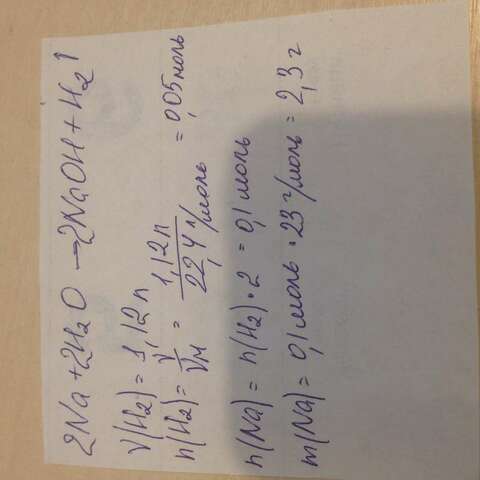 2Na + 2H₂O → 2NaOH + H₂↑
V(H₂) = 1,12л
n(H₂) = V/Vм = 1,12л/22,4 л/моль = 0,05 моль
n(Na) = n(H₂) · 2 = 0,1 моль
m(Na) = 0,1 моль · 23 г/моль = 2,3 г